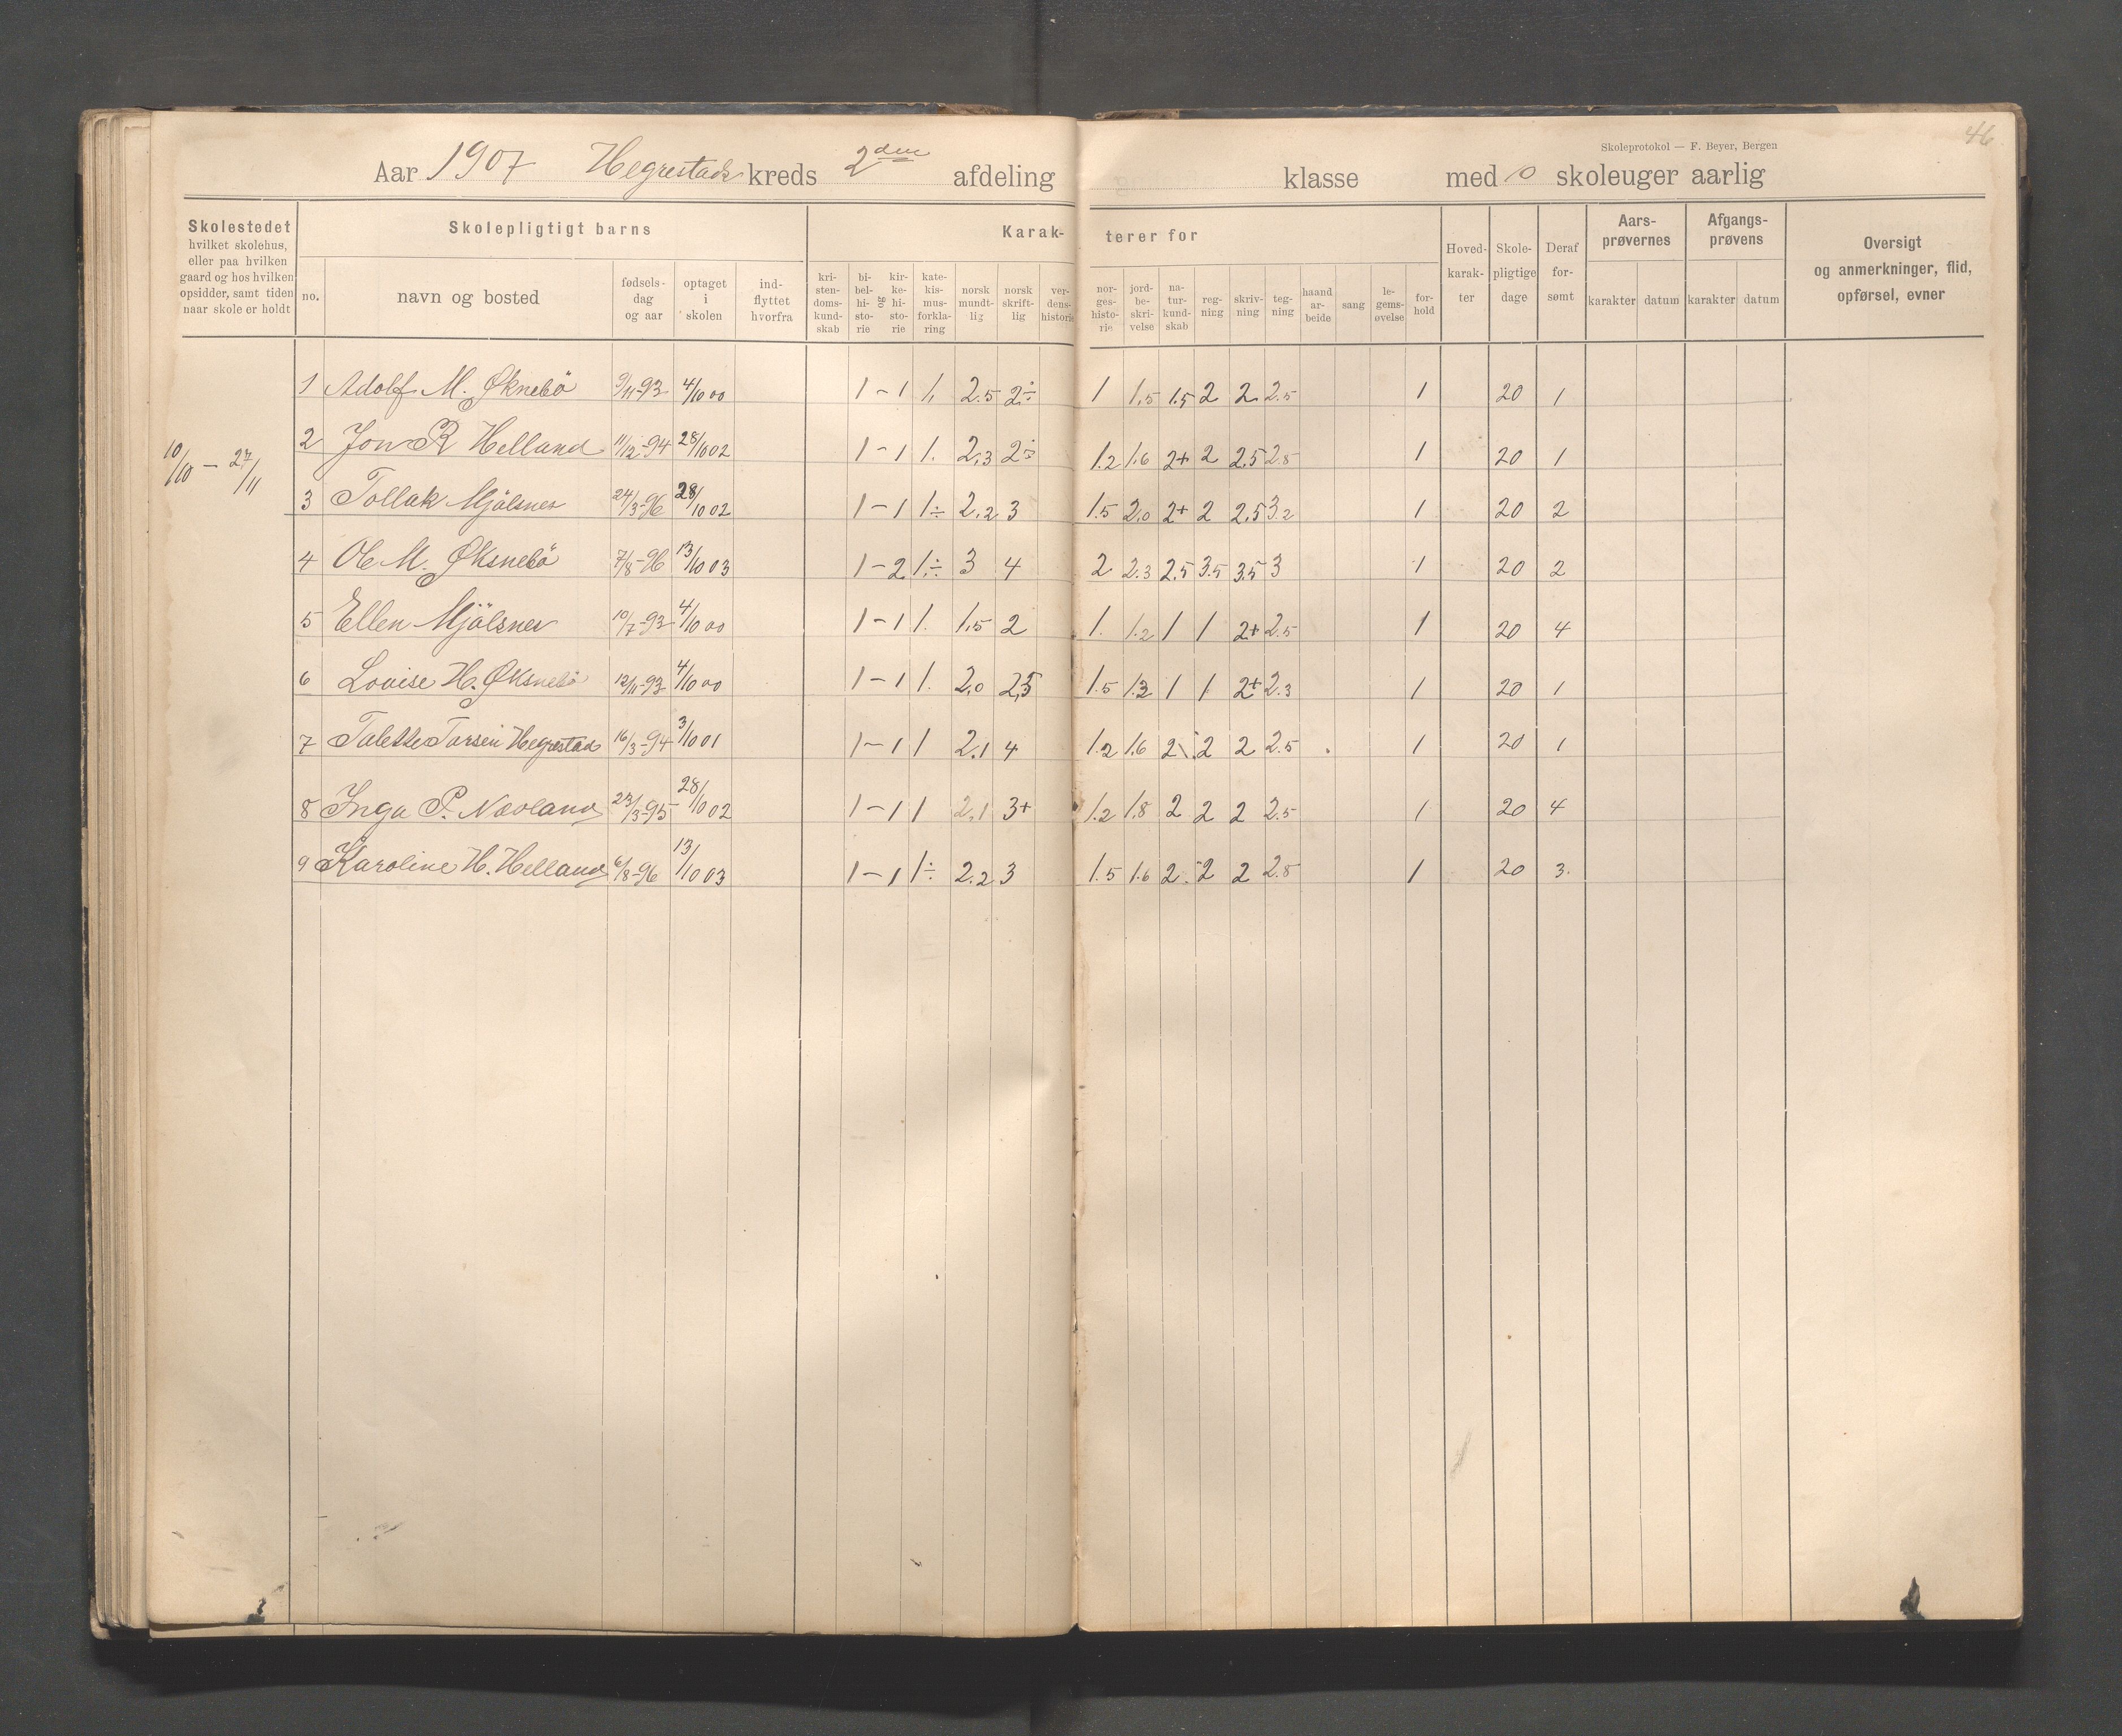 46
Skoleprotokol — F. Beyer, Bergen
Aar 1907 Hegrestads kreds 2den afdeling klasse med 10 skoleuger aarlig
Skolestedet hvilket skolehus, eller paa hvilken gaard og hos hvilken opsidder, samt tiden naar skole er holdt
Skolepligtigt barns
Karakterer for
no. navn og bosted fødselsdag og aar optaget i skolen indflyttet hvorfra
kristendomskundskab bibelhistorie og kirkehistorie katekismusforklaring norsk mundtlig norsk skriftlig verdenshistorie
norgeshistorie jordbeskrivelse naturkundskab regning skrivning tegning haandarbeide sang legemsøvelse forhold
Hovedkarakter Skolepligtige dage Deraf forsømt
Aarsprøvernes karakter datum Afgangsprøvens karakter datum
Oversigt og anmerkninger, flid, opførsel, evner
10/10 — 27/11
1 Adolf M. Øknebö 9/11-93 4/10 00 1 - 1 1. 2.5 2÷ 1 1.5 1.5 2 2. 2.5 1 20 1
2 Jon R Helland 11/12-94 28/10 02 1 - 1 1. 2.3 2÷ 1.2 1.6 2+ 2 2.5 2.8 1 20 1
3 Tollak Mjölsnes 24/3-96 28/10 02 1 - 1 1÷ 2.2 3 1.5 2.0 2+ 2 2.5 3.2 1 20 2
4 Ole M. Øksnebö 7/8-96 13/10 03 1 - 2 1÷ 3 4 2 2.3 2.5 3.5 3.5 3 1 20 2
5 Ellen Mjölsnes 10/7-93 4/10 00 1 - 1 1. 1.5 2 1. 1.2 1 1 2+ 2.5 1 20 4
6 Lovise H. Øksnebö 12/11-93 4/10 00 1 - 1 1. 2.0 2.5 1.5 1.3 1 1 2+ 2.3 1 20 1
7 Talette Tarsen Hegrestad 16/3-94 3/10 01 1 - 1 1 2.1 4 1.2 1.6 2 2 2 2.5 1 20 1
8 Inga P. Nevland 23/3-95 28/10 02 1 - 1 1 2.1 3+ 1.2 1.8 2 2 2 2.5 1 20 4
9 Karoline H. Helland 6/8-96 13/10 03 1 - 1 1÷ 2.2 3 1.5 1.6 2. 2 2 2.8 1 20 3.